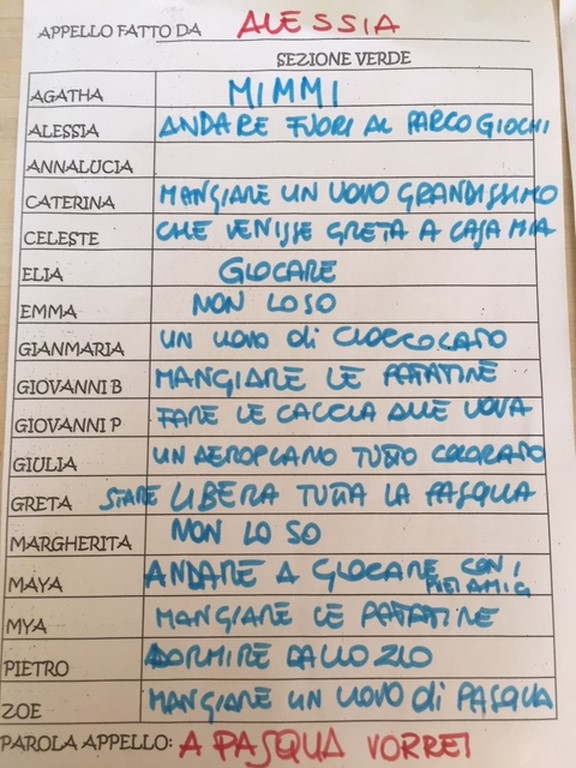 APPELLO FATTO DA ALESSIA
SEZIONE VERDE
AGATHA MIMMI
ALESSIA ANDARE FUORI AL PARCO GIOCHI
ANNALUCIA
CATERINA MANGIARE UN UOVO GRANDISSIMO
CELESTE CHE VENISSE GRETA A CASA MIA
ELIA GIOCARE
EMMA NON LO SO
GIANMARIA UN UOVO di CIOCCOLATO
GIOVANNI B MANGIARE LE PATATINE
GIOVANNI P FARE LE CACCIA ALLE UOVA
GIULIA UN AEROPLANO TUTTO COLORATO
GRETA STARE LIBERA TUTTA LA PASQUA
MARGHERITA NON LO SO
MAYA ANDARE A GIOCARE CON I MIEI AMICI
MYA MANGIARE LE PATATINE
PIETRO DORMIRE DALLO ZIO
ZOE MANGIARE UN UOVO di PASQUA
PAROLA APPELLO: A PASQUA VORREI